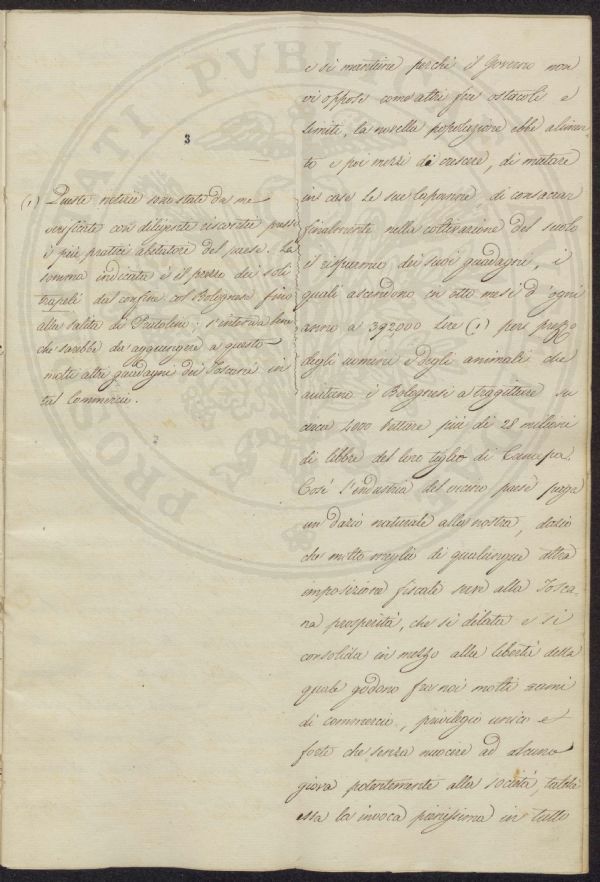 3
e si mantiene perchè il Governo non
vi oppose come altri fra ostacoli e
limiti, la novella popolazione ebbe alimen-
to e poi mezzi di crescere, di mutare
in case le sue capanne, di consacrar
finalmente nella coltivazione del suolo
il risparmio dei suoi guadagni, i
quali ascendono in otto mesi d'ogni
anno a 392000 lire (1) per prezzo
degli uomini e degli animali che
aiutano i Bolognesi a traggittare su
circa 4000 vetture più di 28 milioni
di libbre del loro tiglio di Canepa.
Così l'industria del vicino paese paga
un dazio naturale alla nostra, dazio
che molto meglio di qualunque altra
imposizione fiscale serve alla Tosca-
na prosperità, che si dilata e si
consolida in mezzo alla libertà della
quale godono fra noi molti rami
di commercio, privilegio unico e
forte che senza nuocere ad alcuno
giova potentemente alla società, talchè
essa la invoca pienissima in tutto
(1) Queste notizie sono state da me
verificate con diligente riscontri presso
i più pratici abitatori del paese. La
somma indicata è il prezzo dei soli
trapeli da confine col Bolognese fino
alla salita di Pratolino; s'intende bene
che sarebbe da aggiungere a questo
molti altri guadagni dei Toscani in
tal Commercio.
PROSSI ATI PVBLI